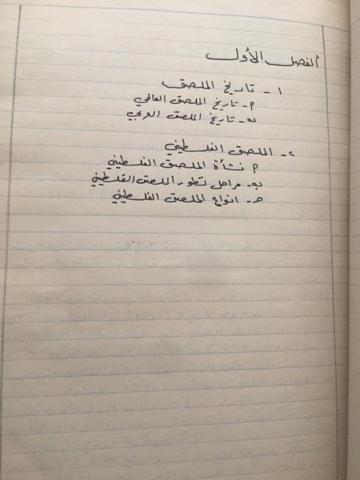 الفصل الأول
١- تاريخ الملصق
أ- تاريخ الملصق العالمي
ب- تاريخ الملصق العربي
٢- الملصق الفلسطيني
أ نشأة الملصق الفلسطيني
ب- مراحل تطور الملصق الفلسطيني
جـ- انواع الملصق الفلسطيني